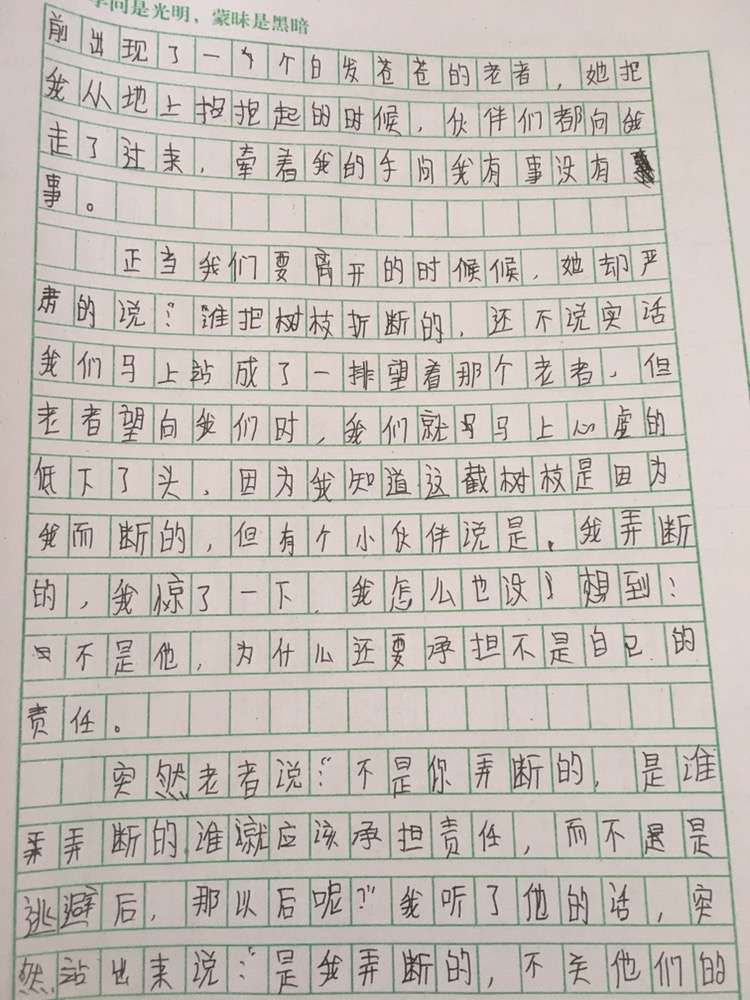 学问是光明，蒙昧是黑暗
前出现了一个个白发苍苍的老者，她把
我从地上抱抱起的时候，伙伴们都向我
走了过来，牵着我的手问我有事没有
事。
正当我们要离开的时候候，她却严
肃的说：“谁把树枝折断的，还不说实话
我们马上站成了一排望着那个老者，但
老者望向我们时，我们就马马上心虚的
低下了头，因为我知道这截树枝是因为
我而断的，但有个小伙伴说是，我弄断
的，我惊了一下，我怎么也没想到：
不是他，为什么还要承担不是自己的
责任。
突然老者说：“不是你弄断的，是谁
弄弄断的谁就应该承担责任，而不是是
逃避后，那以后呢？”我听了他的话，突
然站出来说：“是我弄断的，不关他们的